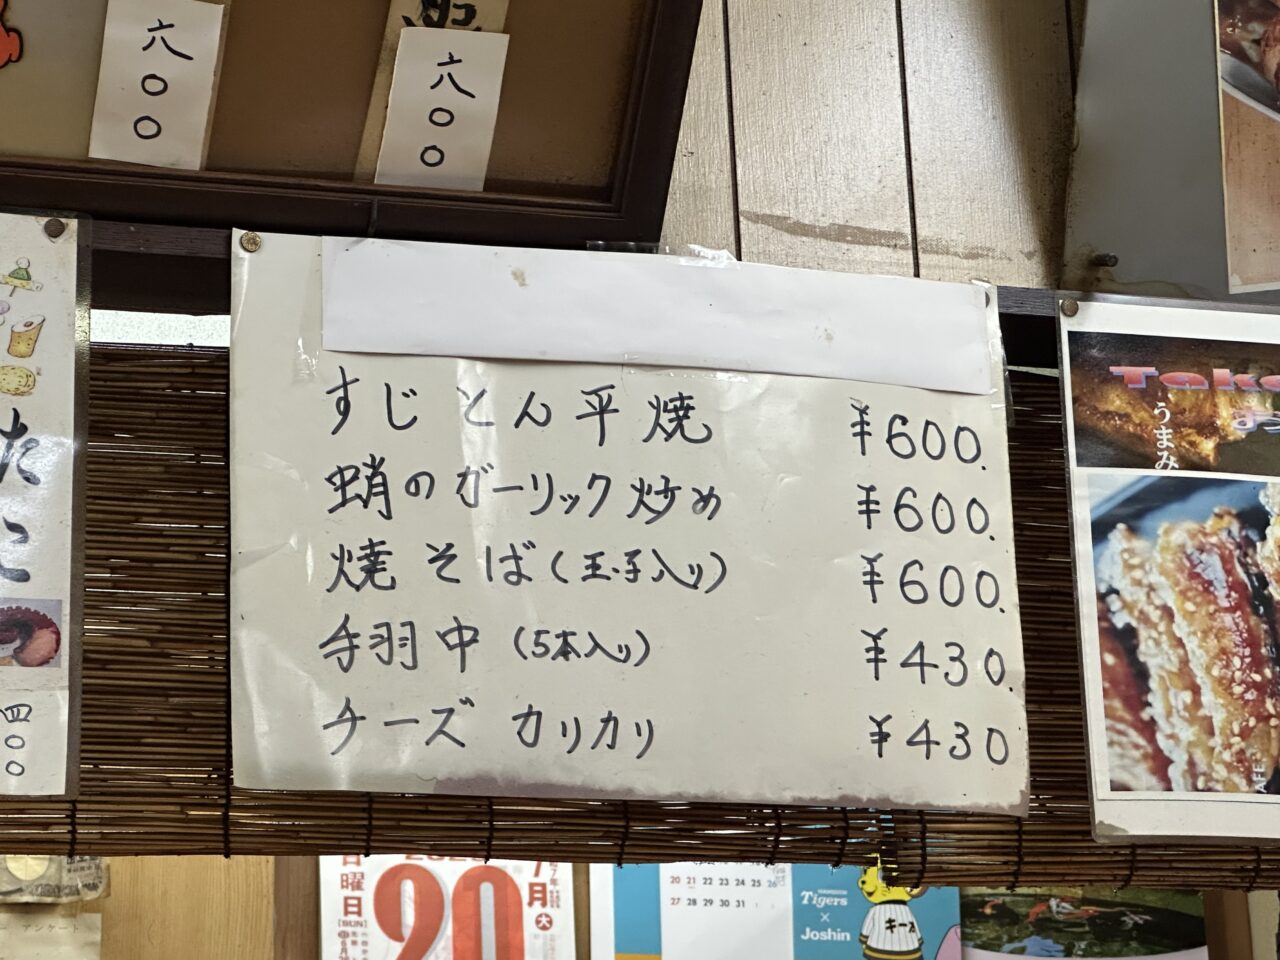 六〇〇
六〇〇
すじとん平焼 ¥600.
蛸のガーリック炒め ¥600.
焼そば(玉子入り) ¥600.
手羽中(5本入り) ¥430.
チーズカリカリ ¥430
たこ
四〇〇
Tako
うまみ
日曜日
[SUN]
20
7月
大
20 21 22 23 24 25 26
27 28 29 30 31
Tigers
×
Joshin
キー太
アンケート